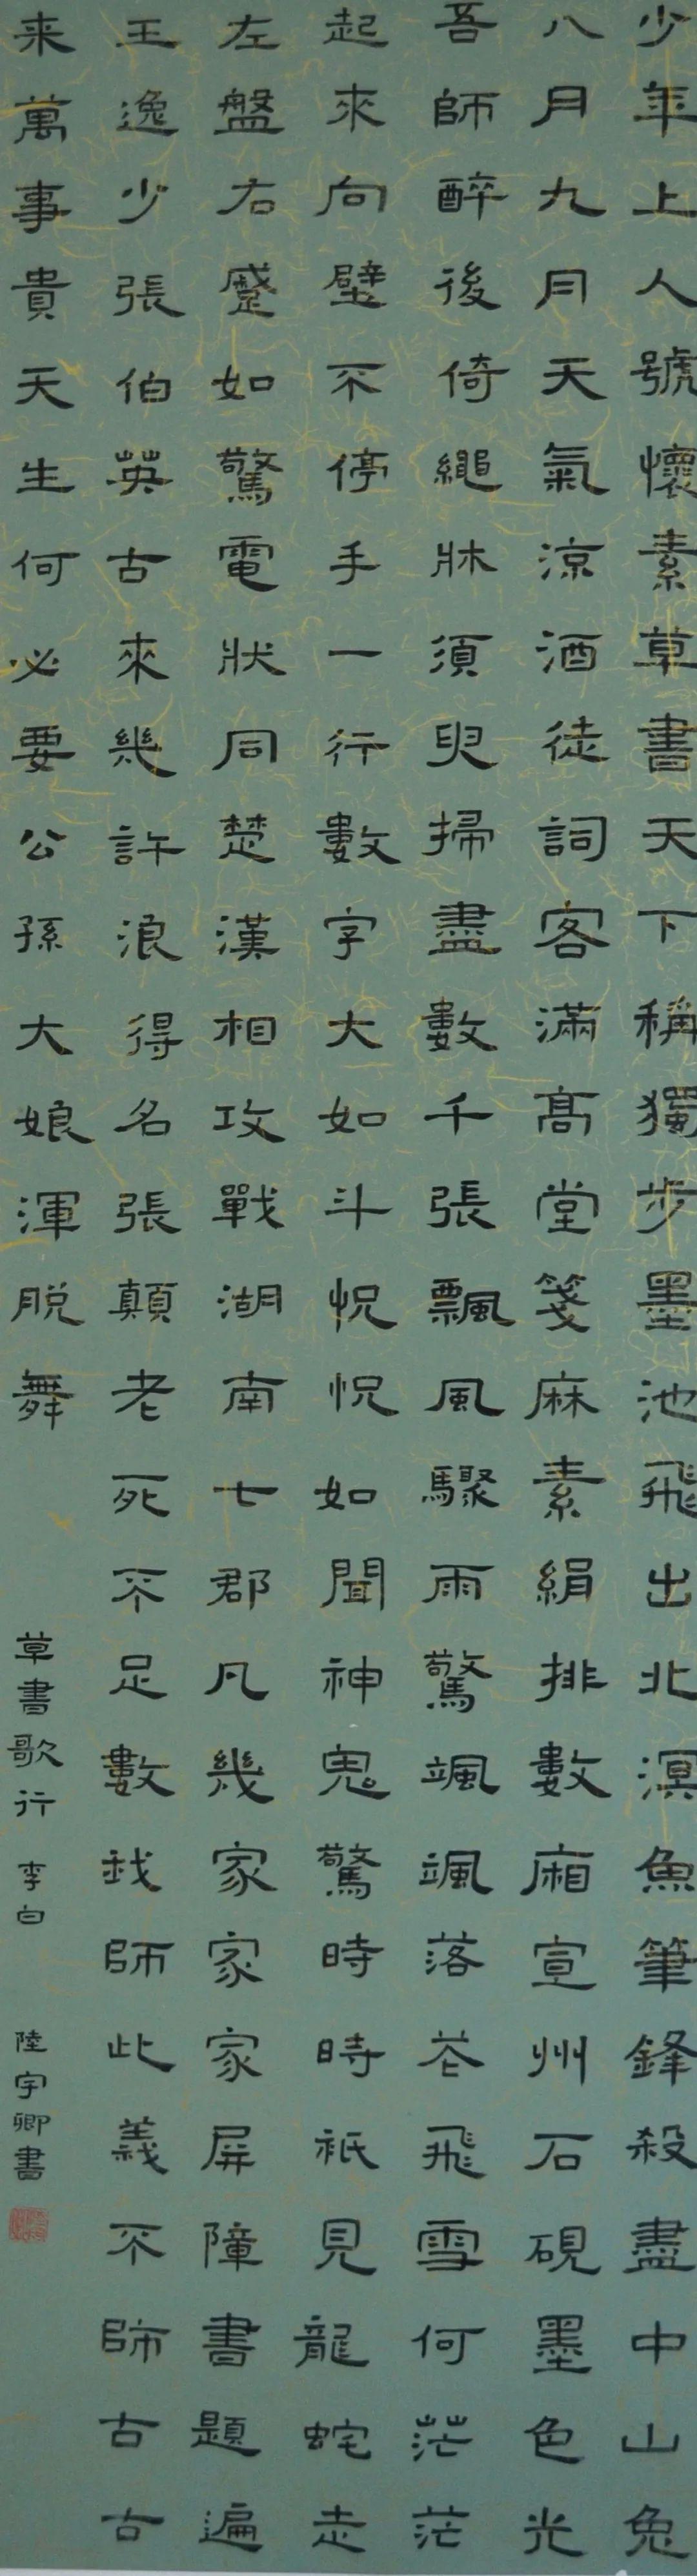 少年上人號懷素草書天下稱獨步墨池飛出北溟魚筆鋒殺盡中山兔
八月九月天氣涼酒徒詞客滿高堂箋麻素絹排數廂宣州石硯墨色光
吾師醉後倚繩牀須臾掃盡數千張飄風驟雨驚颯颯落花飛雪何茫茫
起來向壁不停手一行數字大如斗怳怳如聞神鬼驚時時祇見龍蛇走
左盤右蹙如驚電狀同楚漢相攻戰湖南七郡凡幾家家家屏障書題遍
王逸少張伯英古來幾許浪得名張顛老死不足數我師此義不師古古
来萬事貴天生何必要公孫大娘渾脱舞
草書歌行 李白 陸宇卿書